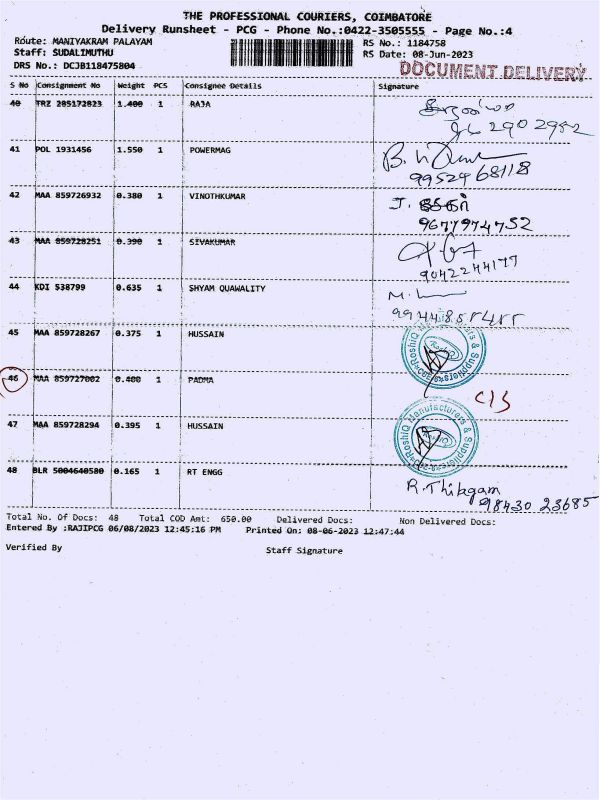 THE PROFESSIONAL COURIERS, COIMBATORE
Delivery Runsheet - PCG - Phone No.:0422-3505555 - Page No.:4
Route: MANIYAKRAM PALAYAM
RS No.: 1184758
Staff: SUDALIMUTHU
RS Date: 08-Jun-2023
DRS No.: DCJB118475804
DOCUMENT DELIVERY
S No Consignment No Weight PCS Consignee Details Signature
40 TRZ 205172823 1.400 1 RAJA
2902982
41 POL 1931456 1.550 1 POWERMAG
9952968118
42 MAA 859726932 0.380 1 VINOTHKUMAR
9677974752
43 MAA 859728251 0.390 1 SIVAKUMAR
9042244177
44 KDI 538799 0.635 1 SHYAM QUAWALITY
45 MAA 859728267 0.375 1 HUSSAIN
RoshiQ Manufacturers & Suppliers
46 MAA 859727002 0.400 1 PADMA
47 MAA 859728294 0.395 1 HUSSAIN
RoshiQ Manufacturers & Suppliers
48 BLR 5004640580 0.165 1 RT ENGG
R. Thiagam
98430 23685
Total No. Of Docs: 48 Total COD Amt: 650.00 Delivered Docs: Non Delivered Docs:
Entered By :RAJIPCG 06/08/2023 12:45:16 PM Printed On: 08-06-2023 12:47:44
Verified By Staff Signature